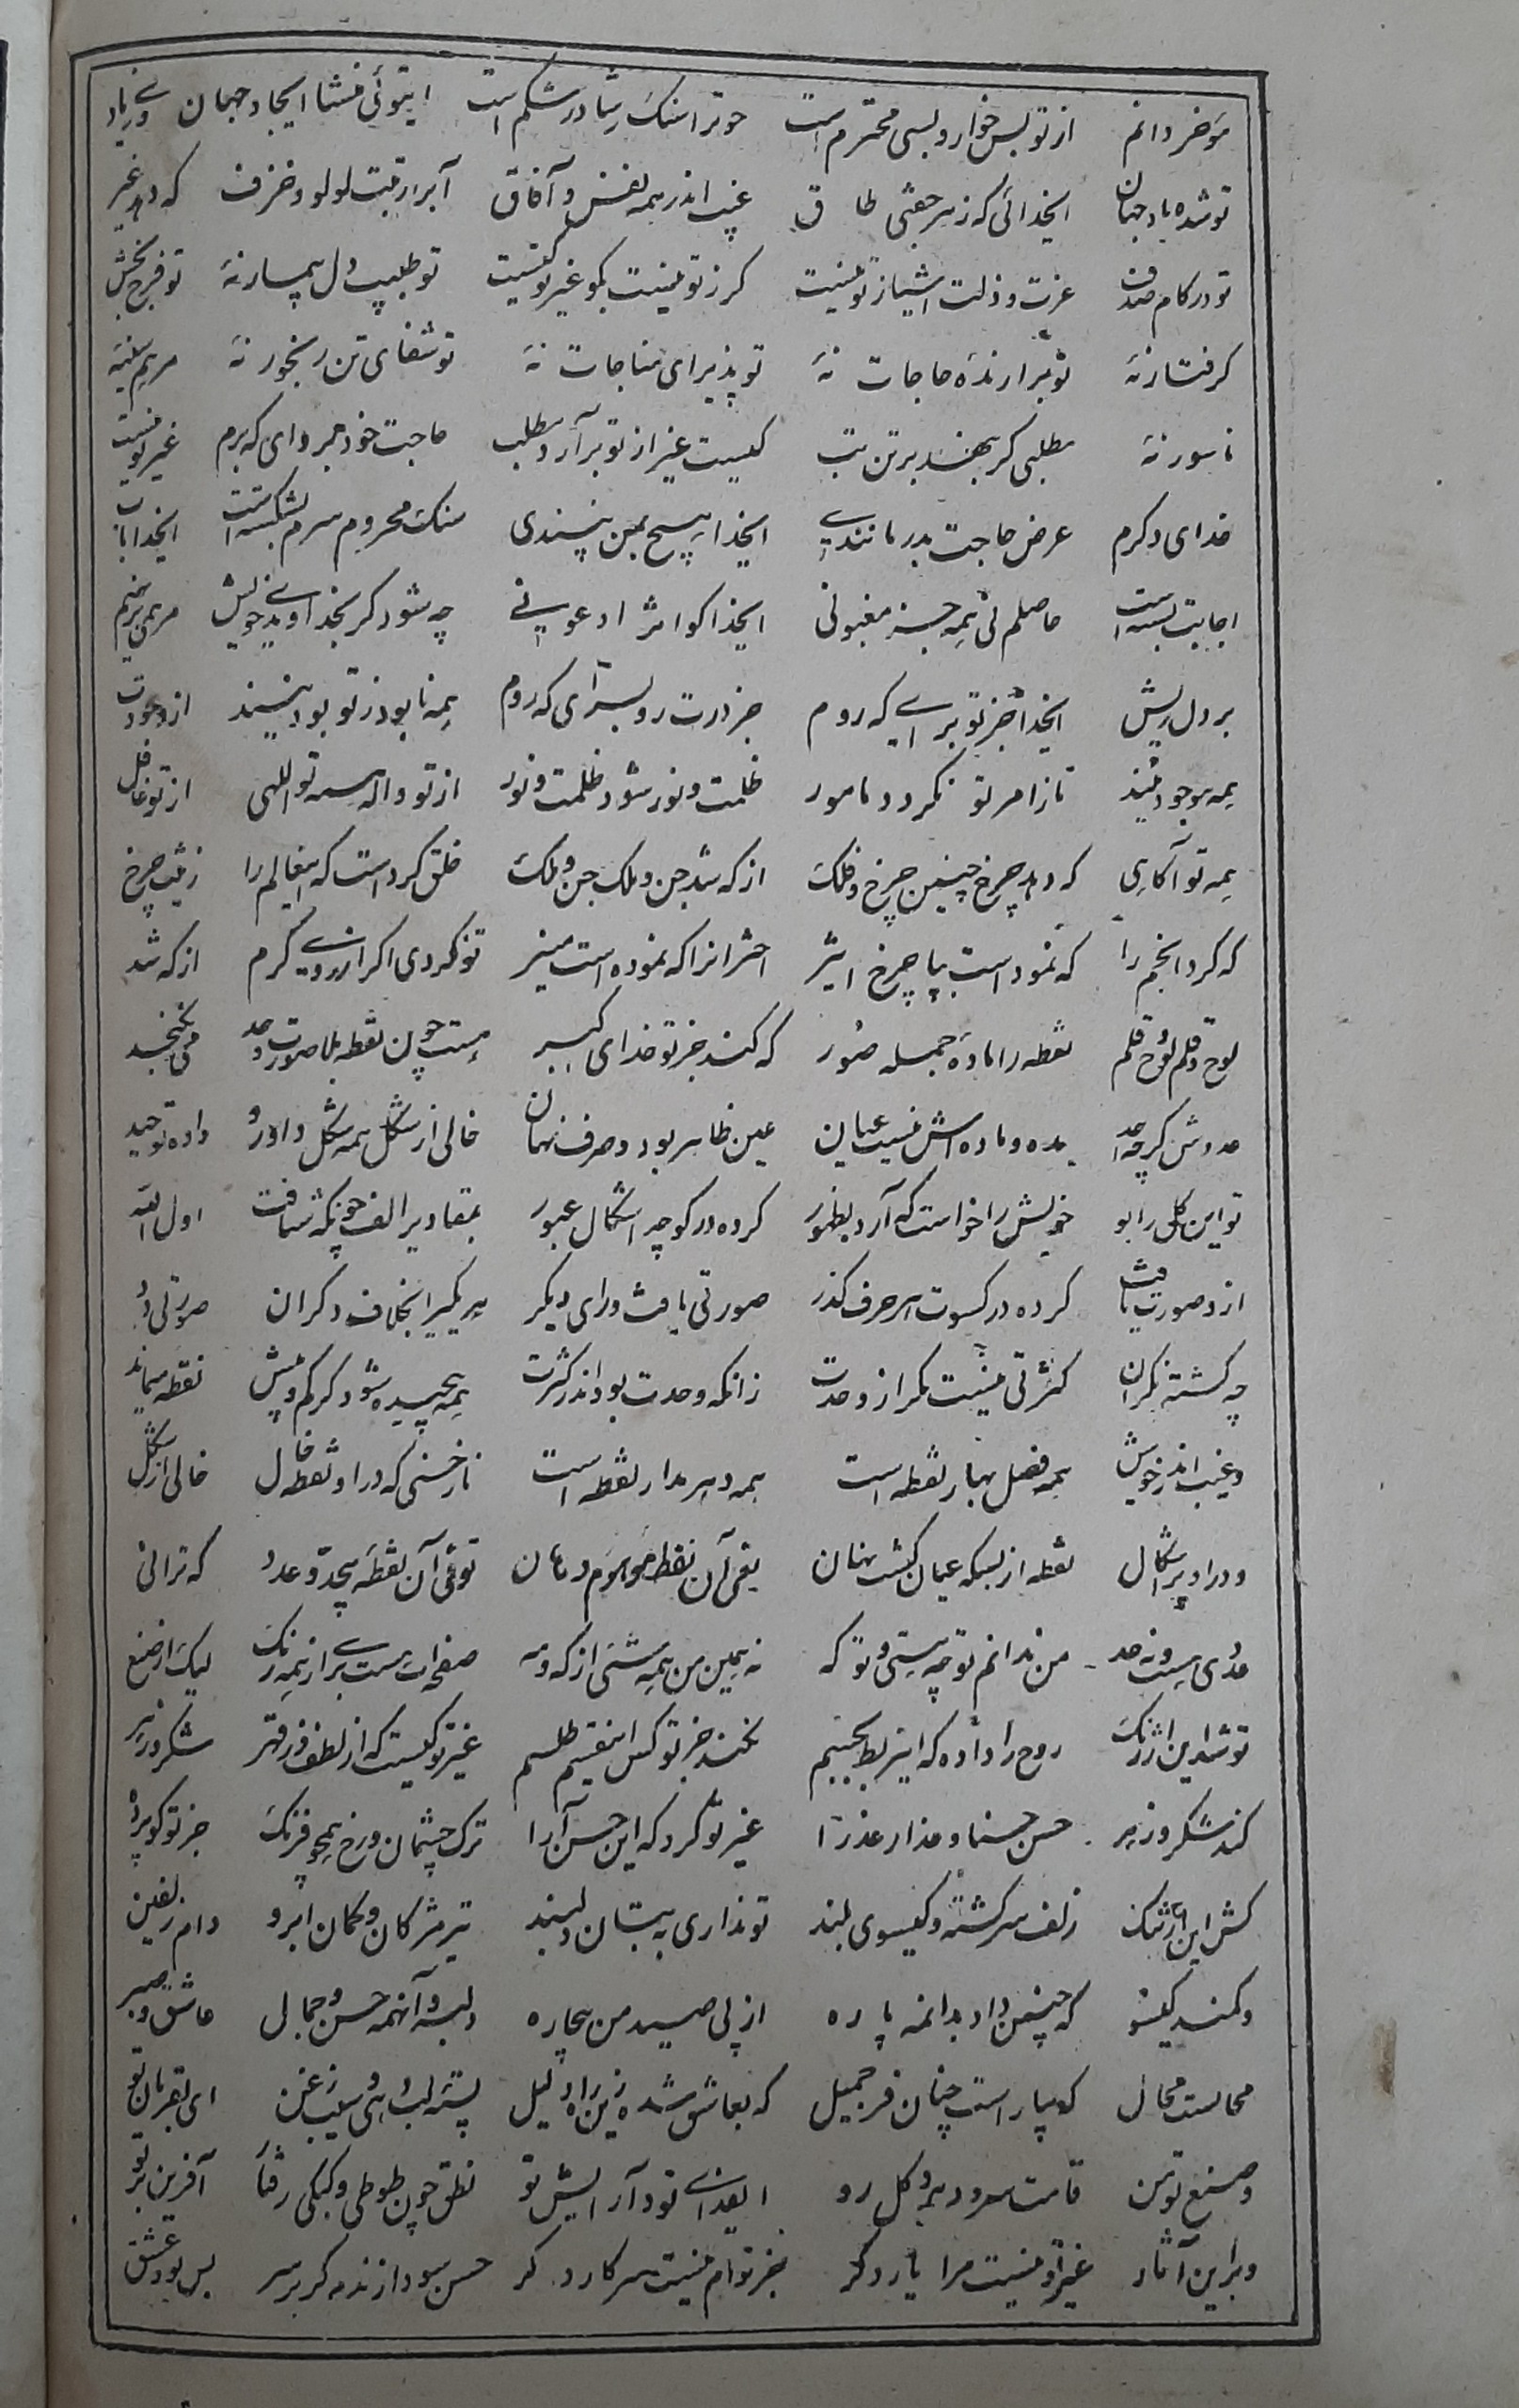 مؤخر دانم از تو بس خوار و بسی محترم است خوترا سنک رشتا در شکم است ایتوئی منشا ایجاد جهان
تو شده باد جهان ایخدائی که زهر جفتی طاق غیب اندر همه نفس و آفاق آبرا رتبت لولو و خزف که دهد غیر
تو در کام صدف عزت و ذلت اشیا ز تو نیست کر ز تو نیست بکو غیر تو کیست تو طبیب دل بیمار نهٔ تو فرح بخش
کرفتار نهٔ تو برارندهٔ حاجات نهٔ تو پذیرای مناجات نهٔ تو شفای تن رنجور نهٔ مرهم سینهٔ
ناسور نهٔ مطلبی کر بهند برتن تب کیست غیر از تو برآرد مطلب حاجت خود بر دای که برم غیر تو نیست
خدای دکرم عرض حاجت بدر مانندی ایخدا هیچ بمن نپسندی سنک محروم سرم بشکسته است ایخدا باب
اجابت بسته است حاصلم نی همه جز مغبونی ایخدا کو اثر ادعونی چه شود کر بخداوندی خویش مرهمی برنهیم
بر دل ریش ایخدا جز تو برای که روم جز درت رو بسرای که روم همه نابود ز تو بود شدند از وجودت
همه موجود شدند تا ز امر تو نکردد مامور ظلمت و نور نشود ظلمت و نور از تو واله همه تو اللهی از تو غافل
همه تو آکاهی که دهد چرخ چنین چرخ و فلک از که شد جن و ملک جن و ملک خلق کرد است که این عالم را زیب چرخ
که کرد انجم را که نمود است بپا چرخ اثیر اخترانرا که نموده است منیر تو نکردی اکر از روی کرم از که شد
لوح و قلم لوح و قلم نقطه را مادهٔ جمله صور که کند جز تو خدای اکبر هست چون نقطه بلا صورت و حد می نکنجد
عدوش کرچه احد مده و ماده اش نیست عیان عین ظاهر بود و صرف نهان خالی از شکل همه شکل در او داده توحید
تو این کل را بو خویش را خواست که آرد بظهور کرده در کوچه اشکال عبور بمقادیر الف چونکه شتافت اول الله
از و صورت یافت کرده در کسوت هر حرف کذر صورتی یافت ورای دیکر هر یکیرا بخلاف دکران صورتی داد
چه کشته نکران کثرتی نیست مکر از وحدت زانکه وحدت بود اندر کثرت همه پیچیده شود کر کم و بیش نقطه میماند
و غیب اندر خویش همه فصل بهار نقطه است همه دهر مدار نقطه است تا رخسنی که در او نقطه خال خالی از شکل
و در او پر اشکال نقطه از بسکه عیان کشت نهان یعنی آن نقطه موهوم دهان توئی آن نقطهٔ بیحد و عدد که ترا نی
عددی هست و نه حد من ندانم تو چه هستی و تو که نه همین من همه شئی از که و مه صفحه ات هست بر از همه رنک لیک از صنع
تو شد این ارژنک روح را داده که این ربط بجسم نکند جز تو کس این قسم طلسم غیر تو کیست که از لطف و ز قهر شکر و زهر
کند شکر و زهر حسن حسنا و عذار عذرا غیر تو کرد که این حسن آرا ترک چشمان و رخ همچو فرنک جز تو کو پرده
کش این ارژنک زلف سرکشته و کیسوی بلند تو نداری به بتان دلبند تیر مژکان و کمان ابرو دام زلفین
و کمند کیسو که چنین داد بدانمه پاره از پی صید من بیچاره دلبر و آنهمه حسن و جمال عاشق و صبر
محالست محال که بیاراست چنان فر جمیل که بعاشق شده زین راه دلیل پسته لب و بهی و سیب ذقن ای بقربان تو
و صنع تو من قامت سرو و بر و کل رو ایفدای تو و آرایش تو نطق چون طوطی و کبکی رفتار آفرین بر تو
و براین آثار غیر تو نیست مرا یار دکر جز توام نیست سر کار دکر حسن سودا زندم کر بر سر بس بود عشق